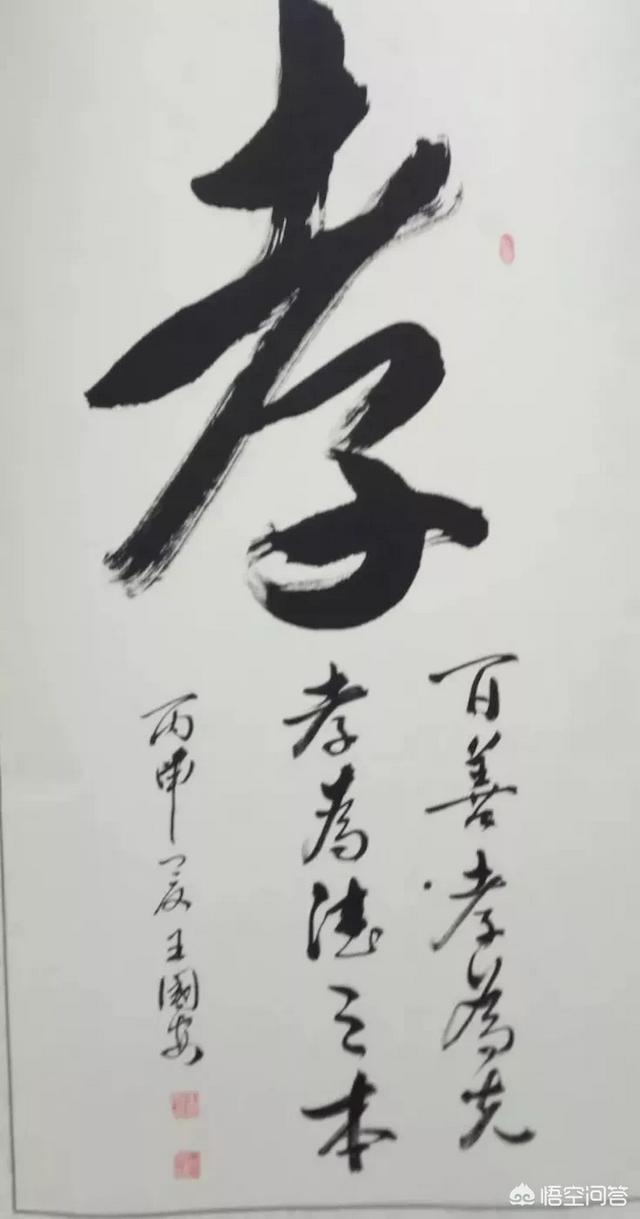 孝
百善孝為先
孝為德之本
丙申夏王國安
悟空问答